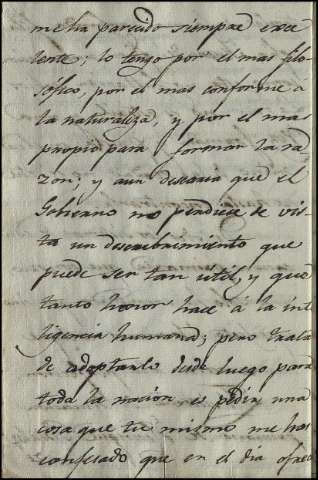 me ha parecido siempre exce
lente; lo tengo por el mas filo
sófico, por el mas conforme á
la naturaleza, y por el mas
propio para formar la ra
zon; y aun desearia que el
Gobierno no perdiese de vis
ta un descubrimiento que
puede ser tan útil, y que
tanto honor hace á la int
ligencia humana; pero trata
de adaptarlo desde luego para
toda la nacion es pedir una
cosa que tu mismo me has
confesado que en el dia ofrec